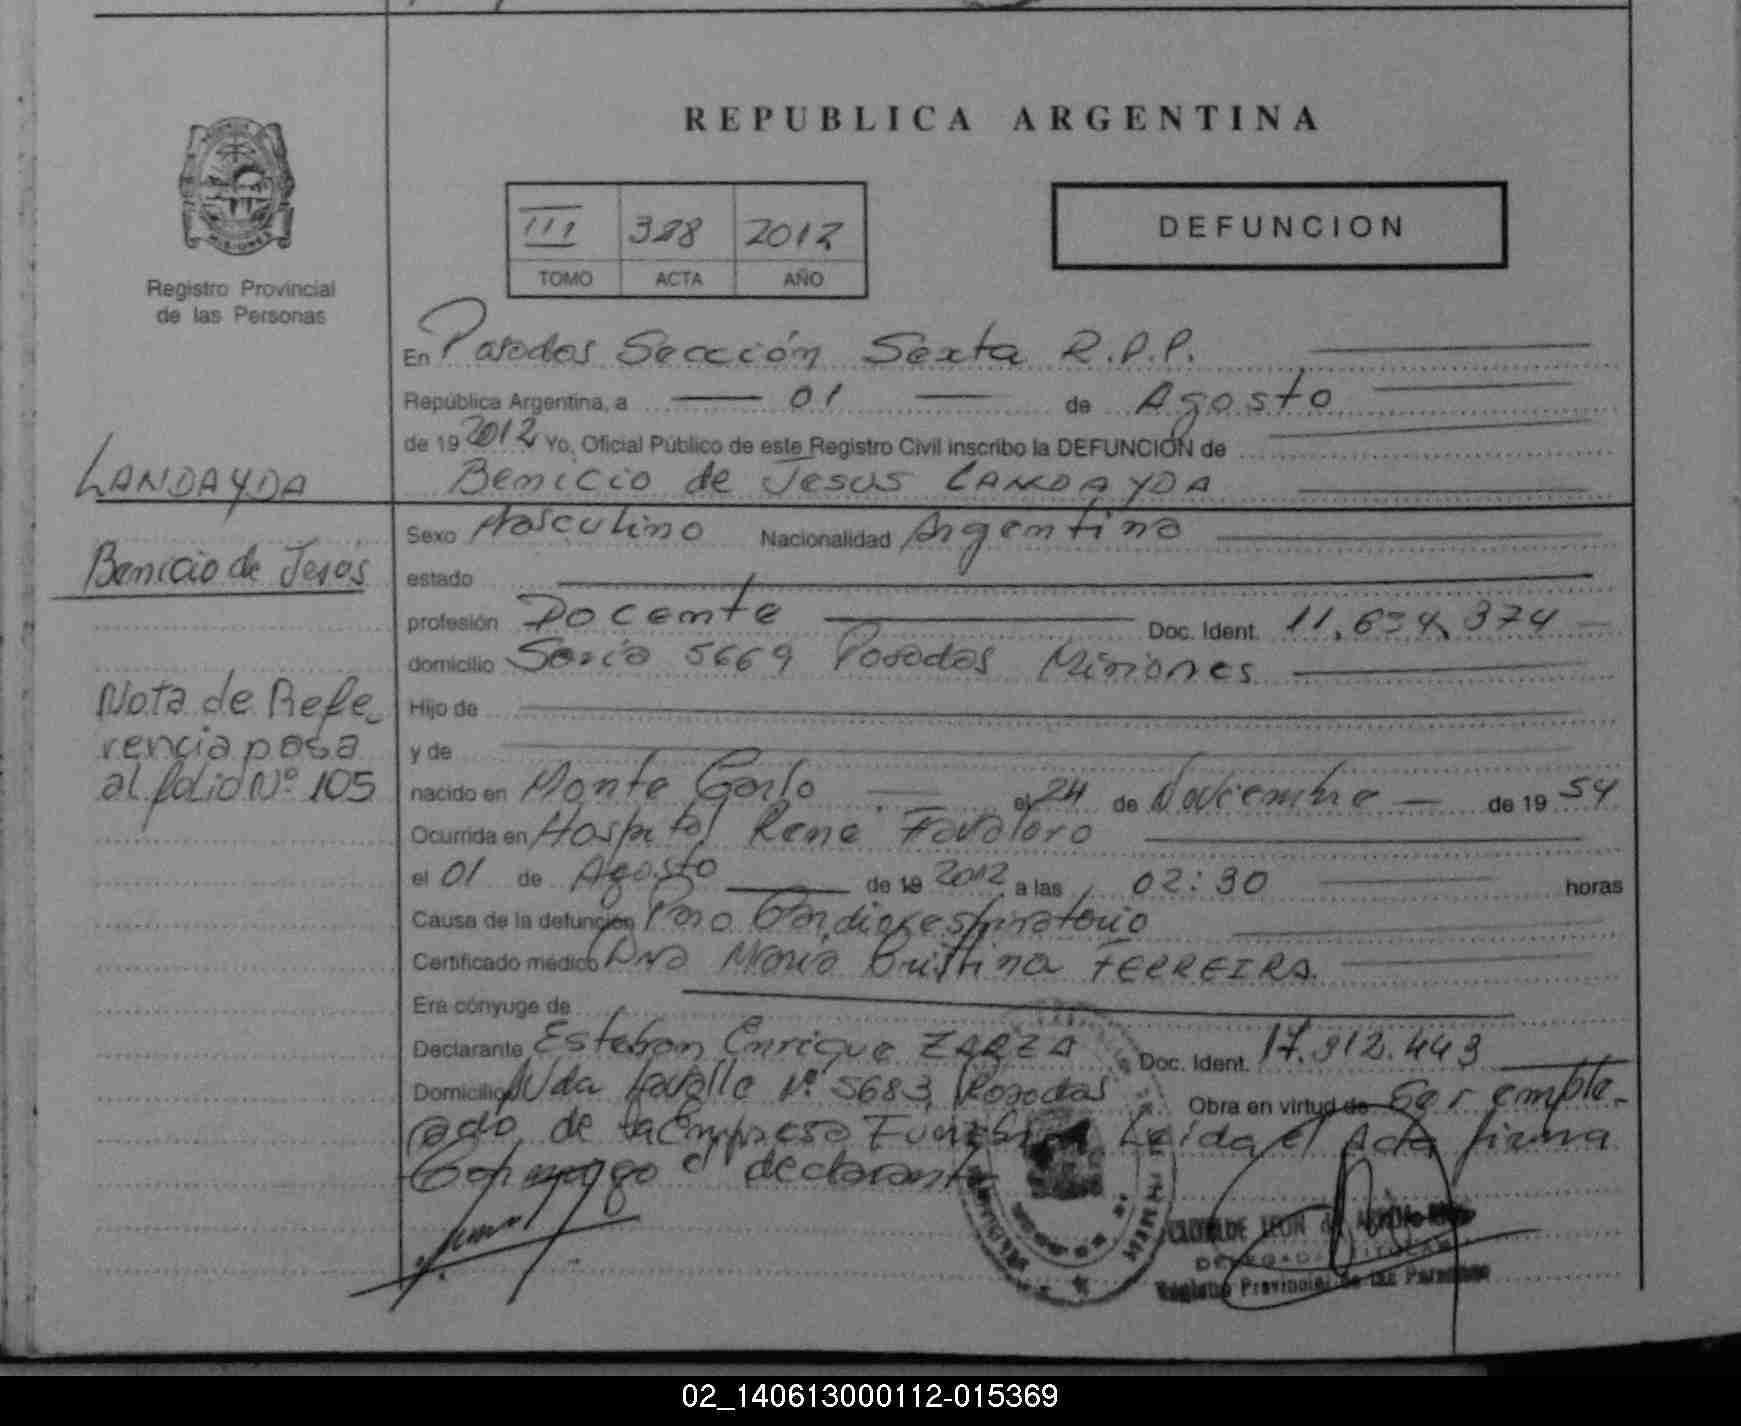 REPUBLICA ARGENTINA
III 328 2012
TOMO ACTA AÑO
DEFUNCION
MISIONES
Registro Provincial
de las Personas
En Posadas Sección Sexta R.P.P.
República Argentina, a 01 de Agosto
de 19 2012 Yo, Oficial Público de este Registro Civil inscribo la DEFUNCION de
LANDAYDA
Benicio de Jesus LANDAYDA
Sexo Masculino Nacionalidad Argentina
Benicio de Jesús
estado
profesión Docente Doc. Ident. 11.674.374
domicilio 5669 Posadas Misiones
Nota de Refe-
rencia pasa
al folio Nº 105
Hijo de
y de
nacido en Monte Carlo el 24 de Noviembre de 19 54
Ocurrida en Hospital René Favaloro
el 01 de Agosto de 19 2012 a las 02:30 horas
Causa de la defunción Paro Cardiorespiratorio
Certificado médico Dra Maria Cristina FERREIRA.
Era cónyuge de
Declarante Esteban Enrique ZARZA Doc. Ident. 17.312.443
Domicilio Avda Lavalle Nº 5683 Posadas Obra en virtud de Ser emple-
ado de la Empresa Funebre Leída el Acta firma
Conmigo el declarante
Registro Provincial de las Personas
02_140613000112-015369